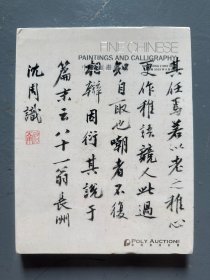 FINE CHINESE
PAINTINGS AND CALLIGRAPHY
其任焉若以老之推心
更作推 競人此過
知自取也嘲者不復
辯因衍其說于
篇末云八十一翁長洲
沈周識
POLY AUCTION